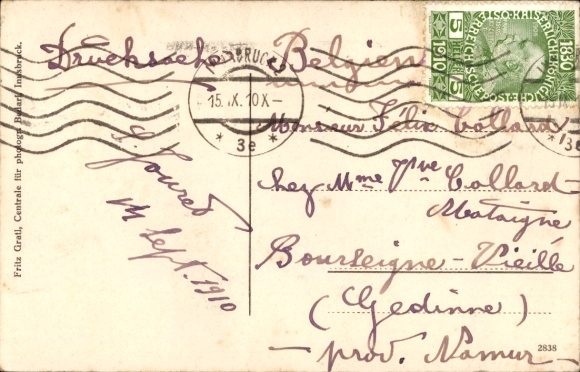 Drucksache
Belgien
INNSBRUCK
15. IX. 10 X-
* 3e *
1830 1910
5 5
Monsieur Félix Collard
chez Mme Vve Collard-
Mataigne
Bourseigne-Vieille
(Gedinne)
- prov. Namur -
14 Sept. 1910
Fritz Gratl, Centrale für photogr. Bedarf, Innsbruck.
2838